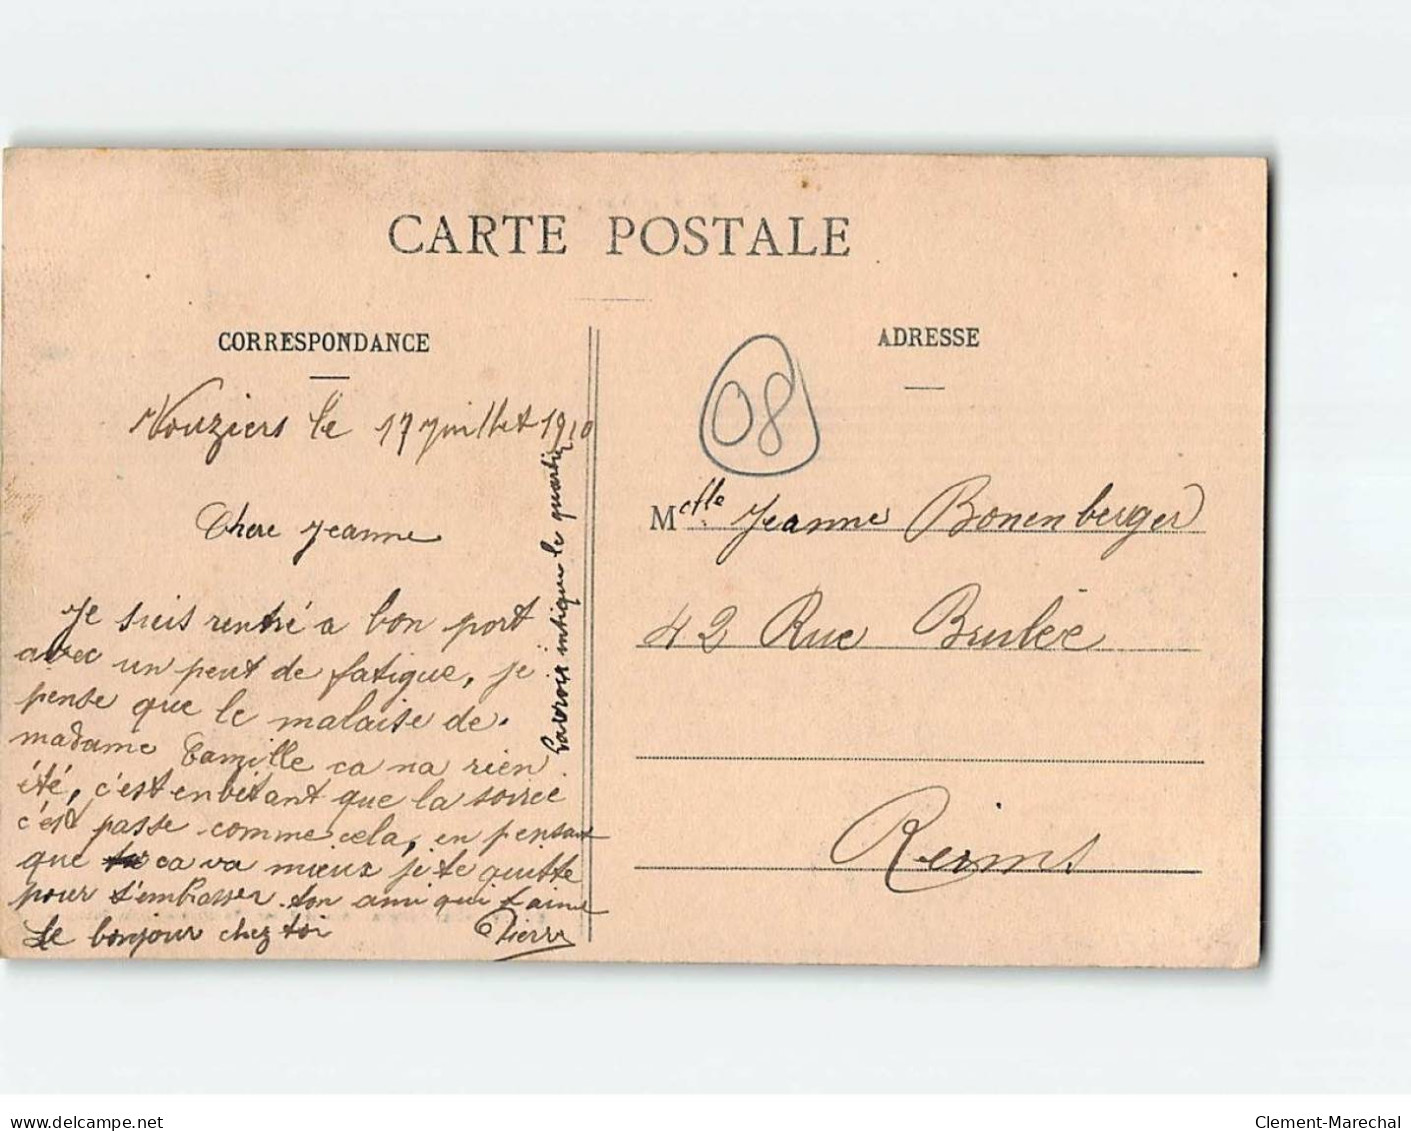 CARTE POSTALE
CORRESPONDANCE
ADRESSE
08
Vouziers le 17 Juillet 1910
Chere Jeanne
Je suis rentré a bon port
avec un peut de fatigue, je
pense que le malaise de
madame Camille ca na rien
été, c'est enbétant que la soiree
c'est passe comme cela, en pensant
que ca va mieux je te quitte
pour t'embrasser ton ami qui t'aime
Le bonjour chez toi Pierre
le quartier
Melle Jeanne Bonenberger
42 Rue Brulée
Reims
delcampe.net
Clement-Marechal